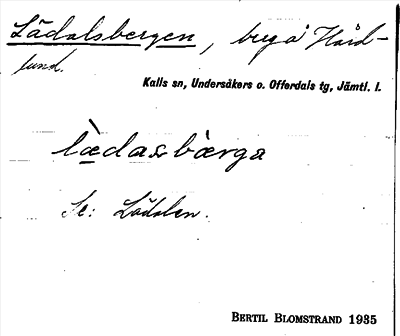 Lädalsbergen, byga Hård-
lund.
Kalls sn, Undersåkers o. Offerdals tg, Jämtl. l.
læ̀dasbærga
Se: Lädalen.
BERTIL BLOMSTRAND 1935